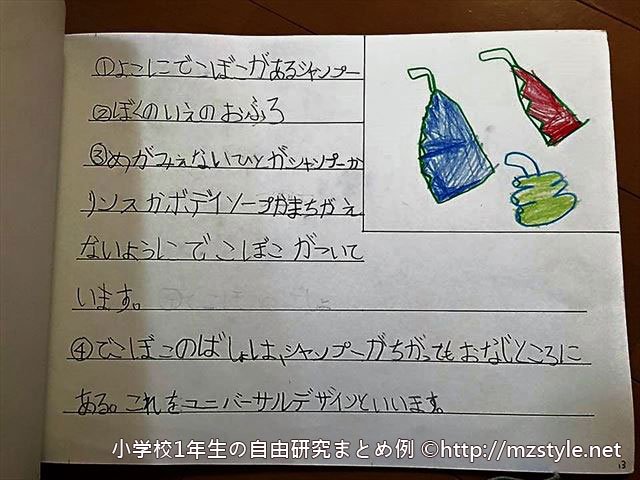 ①よこにでこぼこがあるシャンプー
②ぼくのいえのおふろ
③めがみえないひとがシャンプーか
リンスかボディソープかまちがえ
ないようにでこぼこがついて
います。
④でこぼこのばしょは、シャンプーがちがってもおなじところに
ある。これをユニバーサルデザインといいます。
小学校1年生の自由研究まとめ例 ©http://mzstyle.net
13